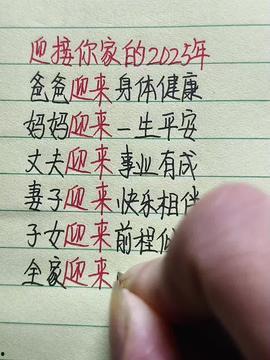 迎接你家的2025年
爸爸迎来身体健康
妈妈迎来一生平安
丈夫迎来事业有成
妻子迎来快乐相伴
子女迎来前程
全家迎来